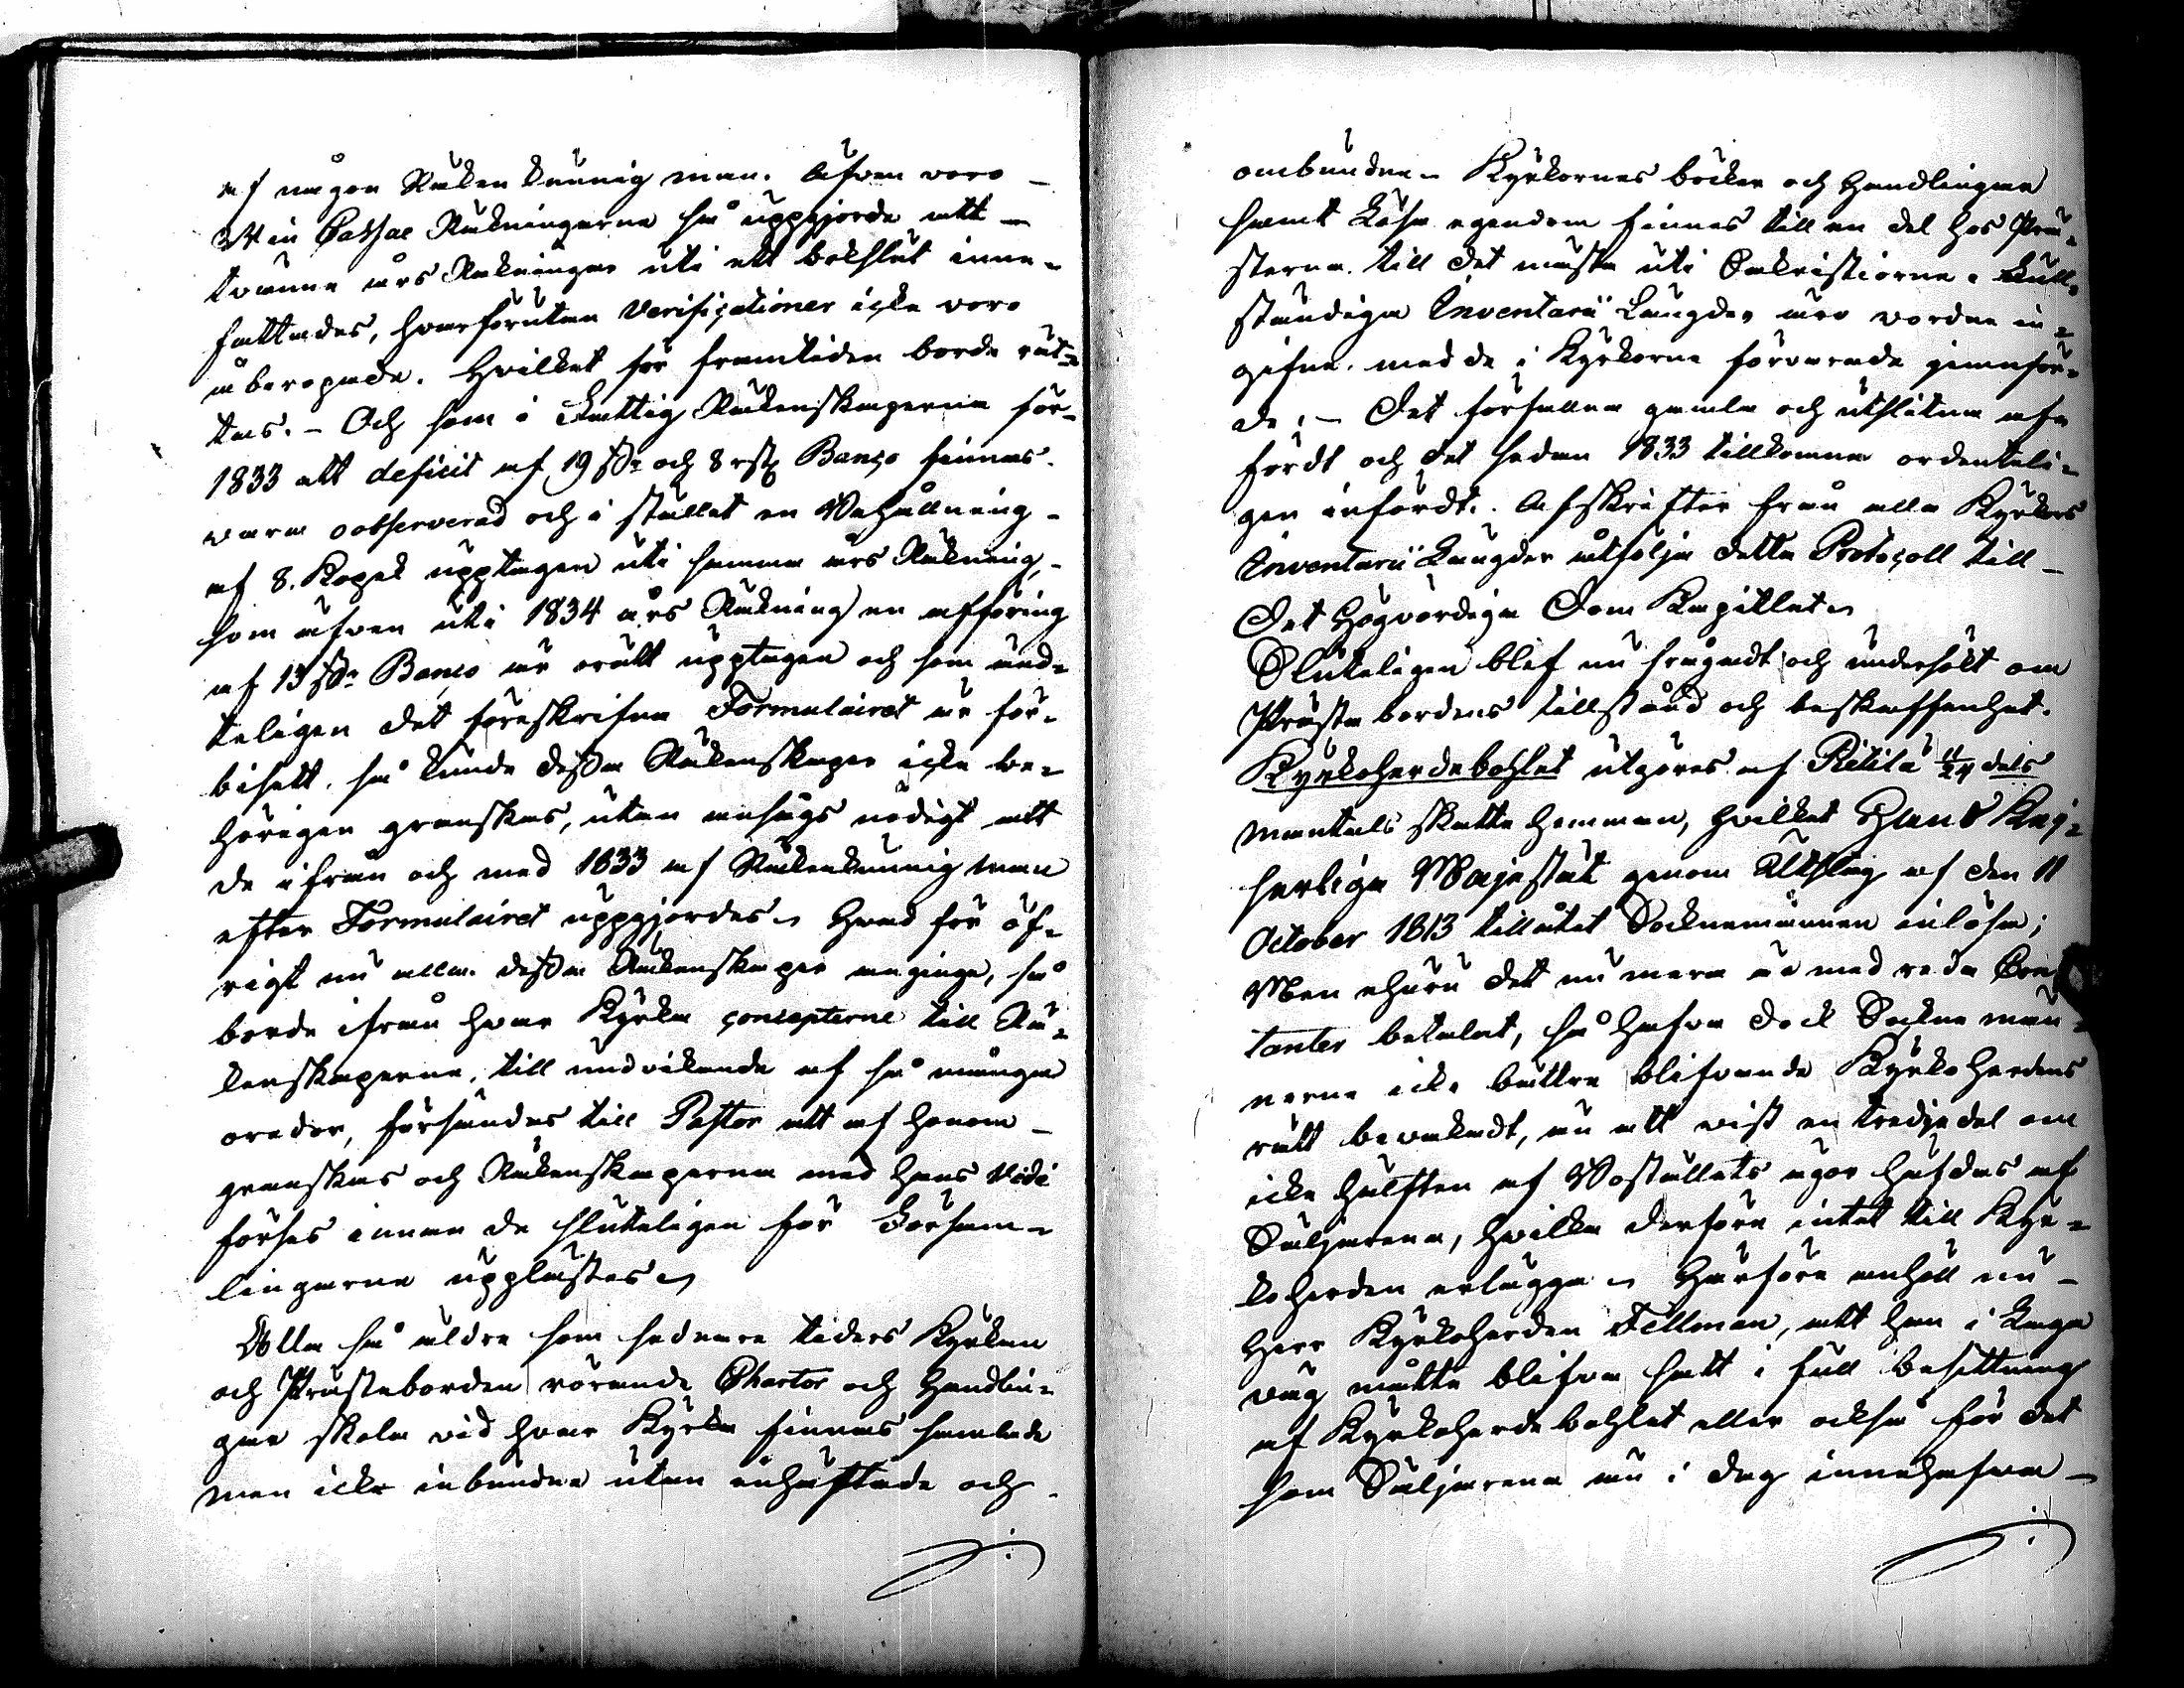 af någon Räkenkunnig man. Äfven voro
Win Cassae Räkningarne så uppgjorde att
tvänne års Räkningar uti ett bokslut inne-
fattades, hvarförutan Verificationer icke voro
åberopade. Hvilket för framtiden borde rät-
tas. – Och som i Fattig Räkenskaperna för
1833 ett deficit af 19 Rr och 8 rst Banco finnes
vara oobserverad och i stället en Behållning
af 8. Kopek upptagen uti samma års Räkning,
som äfven uti 1834 års Räkning en afföring
af 13 Rr Banco är orätt upptagen och som änd-
teligen det föreskrifna Formulairet är för-
bisett, så kunde dessa Räkenskaper icke be-
hörigen granskas, utan ansågs nödigt att
de ifrån och med 1833 af Räkenkunnig man
efter Formulairet uppgjordes. Hvad för öf-
rigt nu alla dessa Räkenskaper anginge, så
borde ifrån hvar Kyrka concepterne till Rä-
kenskaperne, till undvikande af så mången
oredor, försändas till Pastor att af honom
granskas och Räkenskaperna med hans Vidi
förses innan de sluteligen för Försam-
lingarne upplästes.
Alla så äldre som sednare tiders Kyrkan
och Prästeborden rörande Chartor och Handlin-
gar skola vid hvar Kyrka finnas samlade
men icke inbundna utan inhäftade och
ombundna. Kyrkornes böcker och Handlingar
samt Lösa egendom finnes till en del hos Prä-
sterna, till det mästa uti Sakristiorne. Full-
ständiga Inventarii Längder äro vordne in-
gifne, med de i Kyrkorne förvarade jemnför-
de, – Det förfallna gamla och utslitna af-
fördt och det sedan 1833 tillkomna ordenteli-
gen infördt. Afskrifter från alla Kyrkors
Inventarii Längder åtfölja detta Protocoll till
Det Högvördiga Dom Kapitlet.
Sluteligen blef nu frågadt och undersökt om
Prästabordens tillstånd och beskaffenhet.
Kyrkoherdebohlet utgöres af Pitilä 11/24 dels
mantals skatte hemman, hvilket Hans Kej-
serliga Majestät genom Utslag af den 11
October 1813 tillåtit Socknemännen inlösa;
Men ehuru det nu mera är med reda Con-
tanter betalat, så hafva dock Sockne män-
nerne icke bättre blifvande Kyrkoherdens
rätt bevakadt, än att visst en tredjedel om
icke hälften af Boställets ägor häfdas af
Säljarena, hvilka derföre intet till Kyr-
koherden erlägga. Härföre anhöll nu
Herr Kyrkoherden Fellman, att han i Laga
väg måtte blifva satt i full besittning
af Kyrkoherdebohlet eller också för det
som Säljarena än i dag innehafva